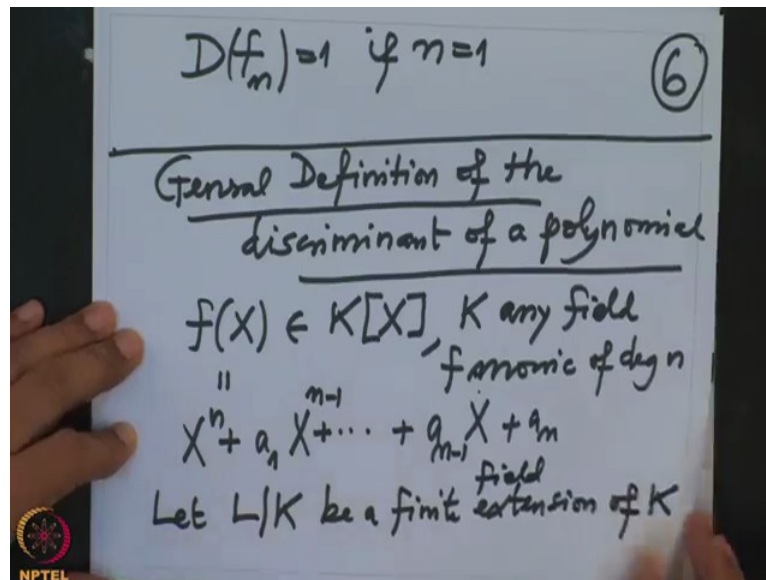 D(f_n)=1 if n=1
6
General Definition of the
discriminant of a polynomial
f(X) ∈ K[X], K any field
f monic of deg n
||
X^n + a_1 X^{n-1} + ··· + a_{n-1} X + a_n
Let L|K be a finite field extension of K
NPTEL